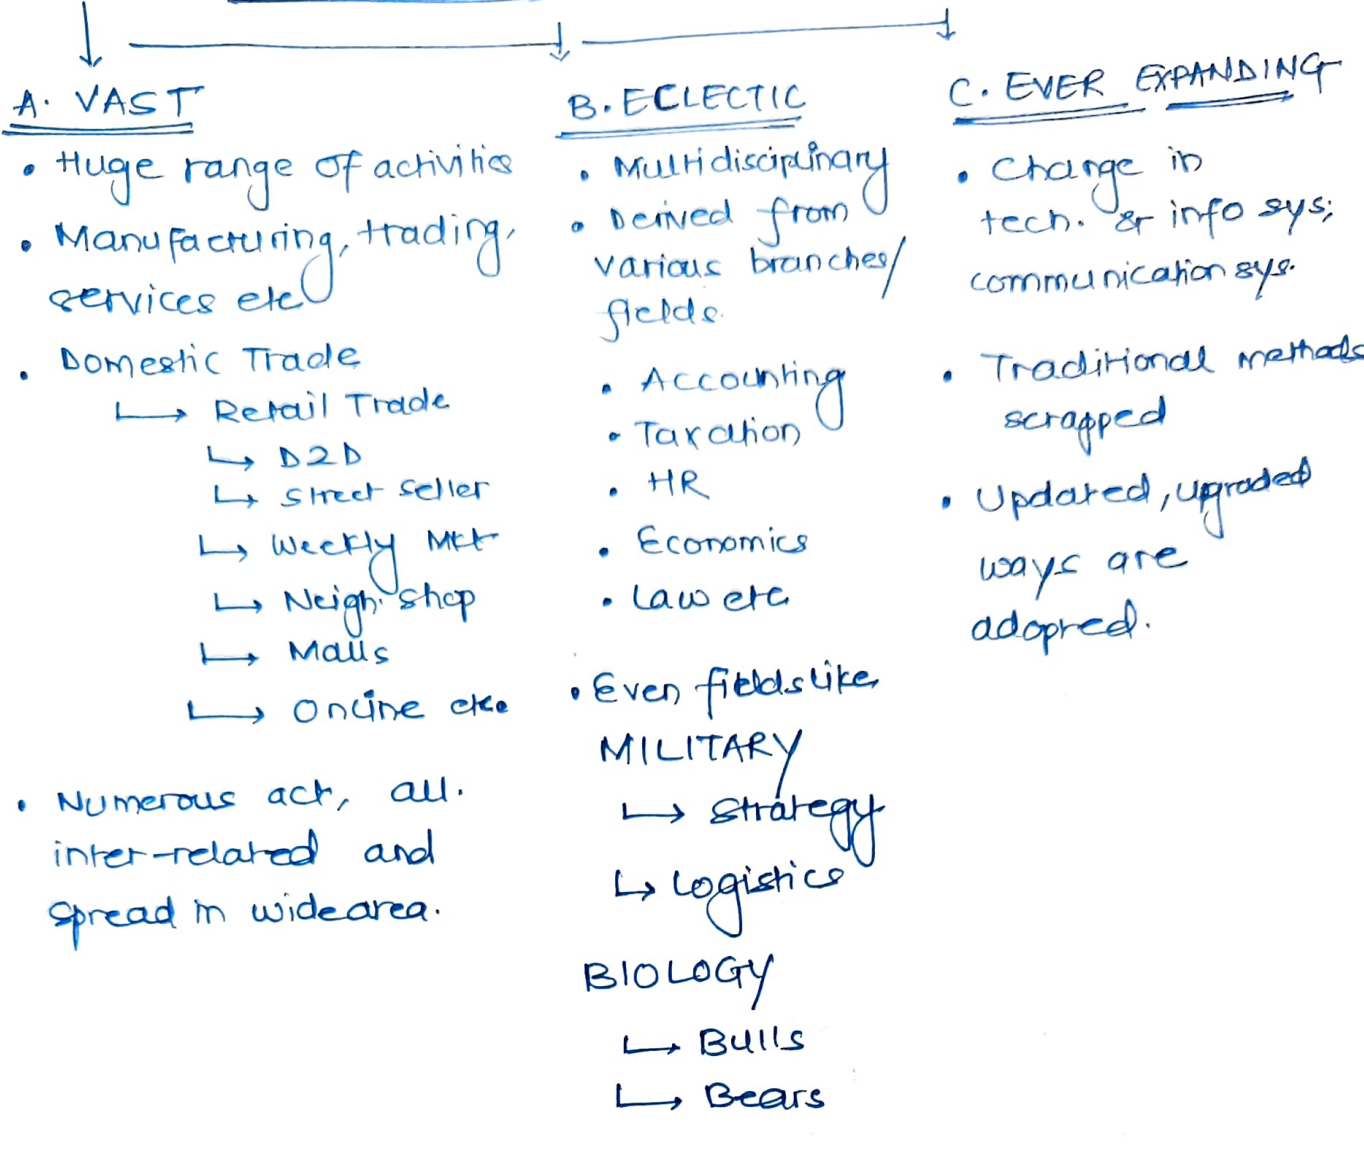 A. VAST
• Huge range of activities
• Manufacturing, trading,
services etc
• Domestic Trade
↳ Retail Trade
↳ D2D
↳ Street seller
↳ Weekly Mkt
↳ Neigh. shop
↳ Malls
↳ Online etc.
• Numerous act, all.
inter-related and
spread in wide area.
B. ECLECTIC
• Multidisciplinary
• Derived from
various branches/
fields.
• Accounting
• Taxation
• HR
• Economics
• Law etc
• Even fields like
MILITARY
↳ Strategy
↳ Logistics
BIOLOGY
↳ Bulls
↳ Bears
C. EVER EXPANDING
• Change in
tech. & info sys;
communication sys.
• Traditional methods
scrapped
• Updated, upgraded
ways are
adopted.